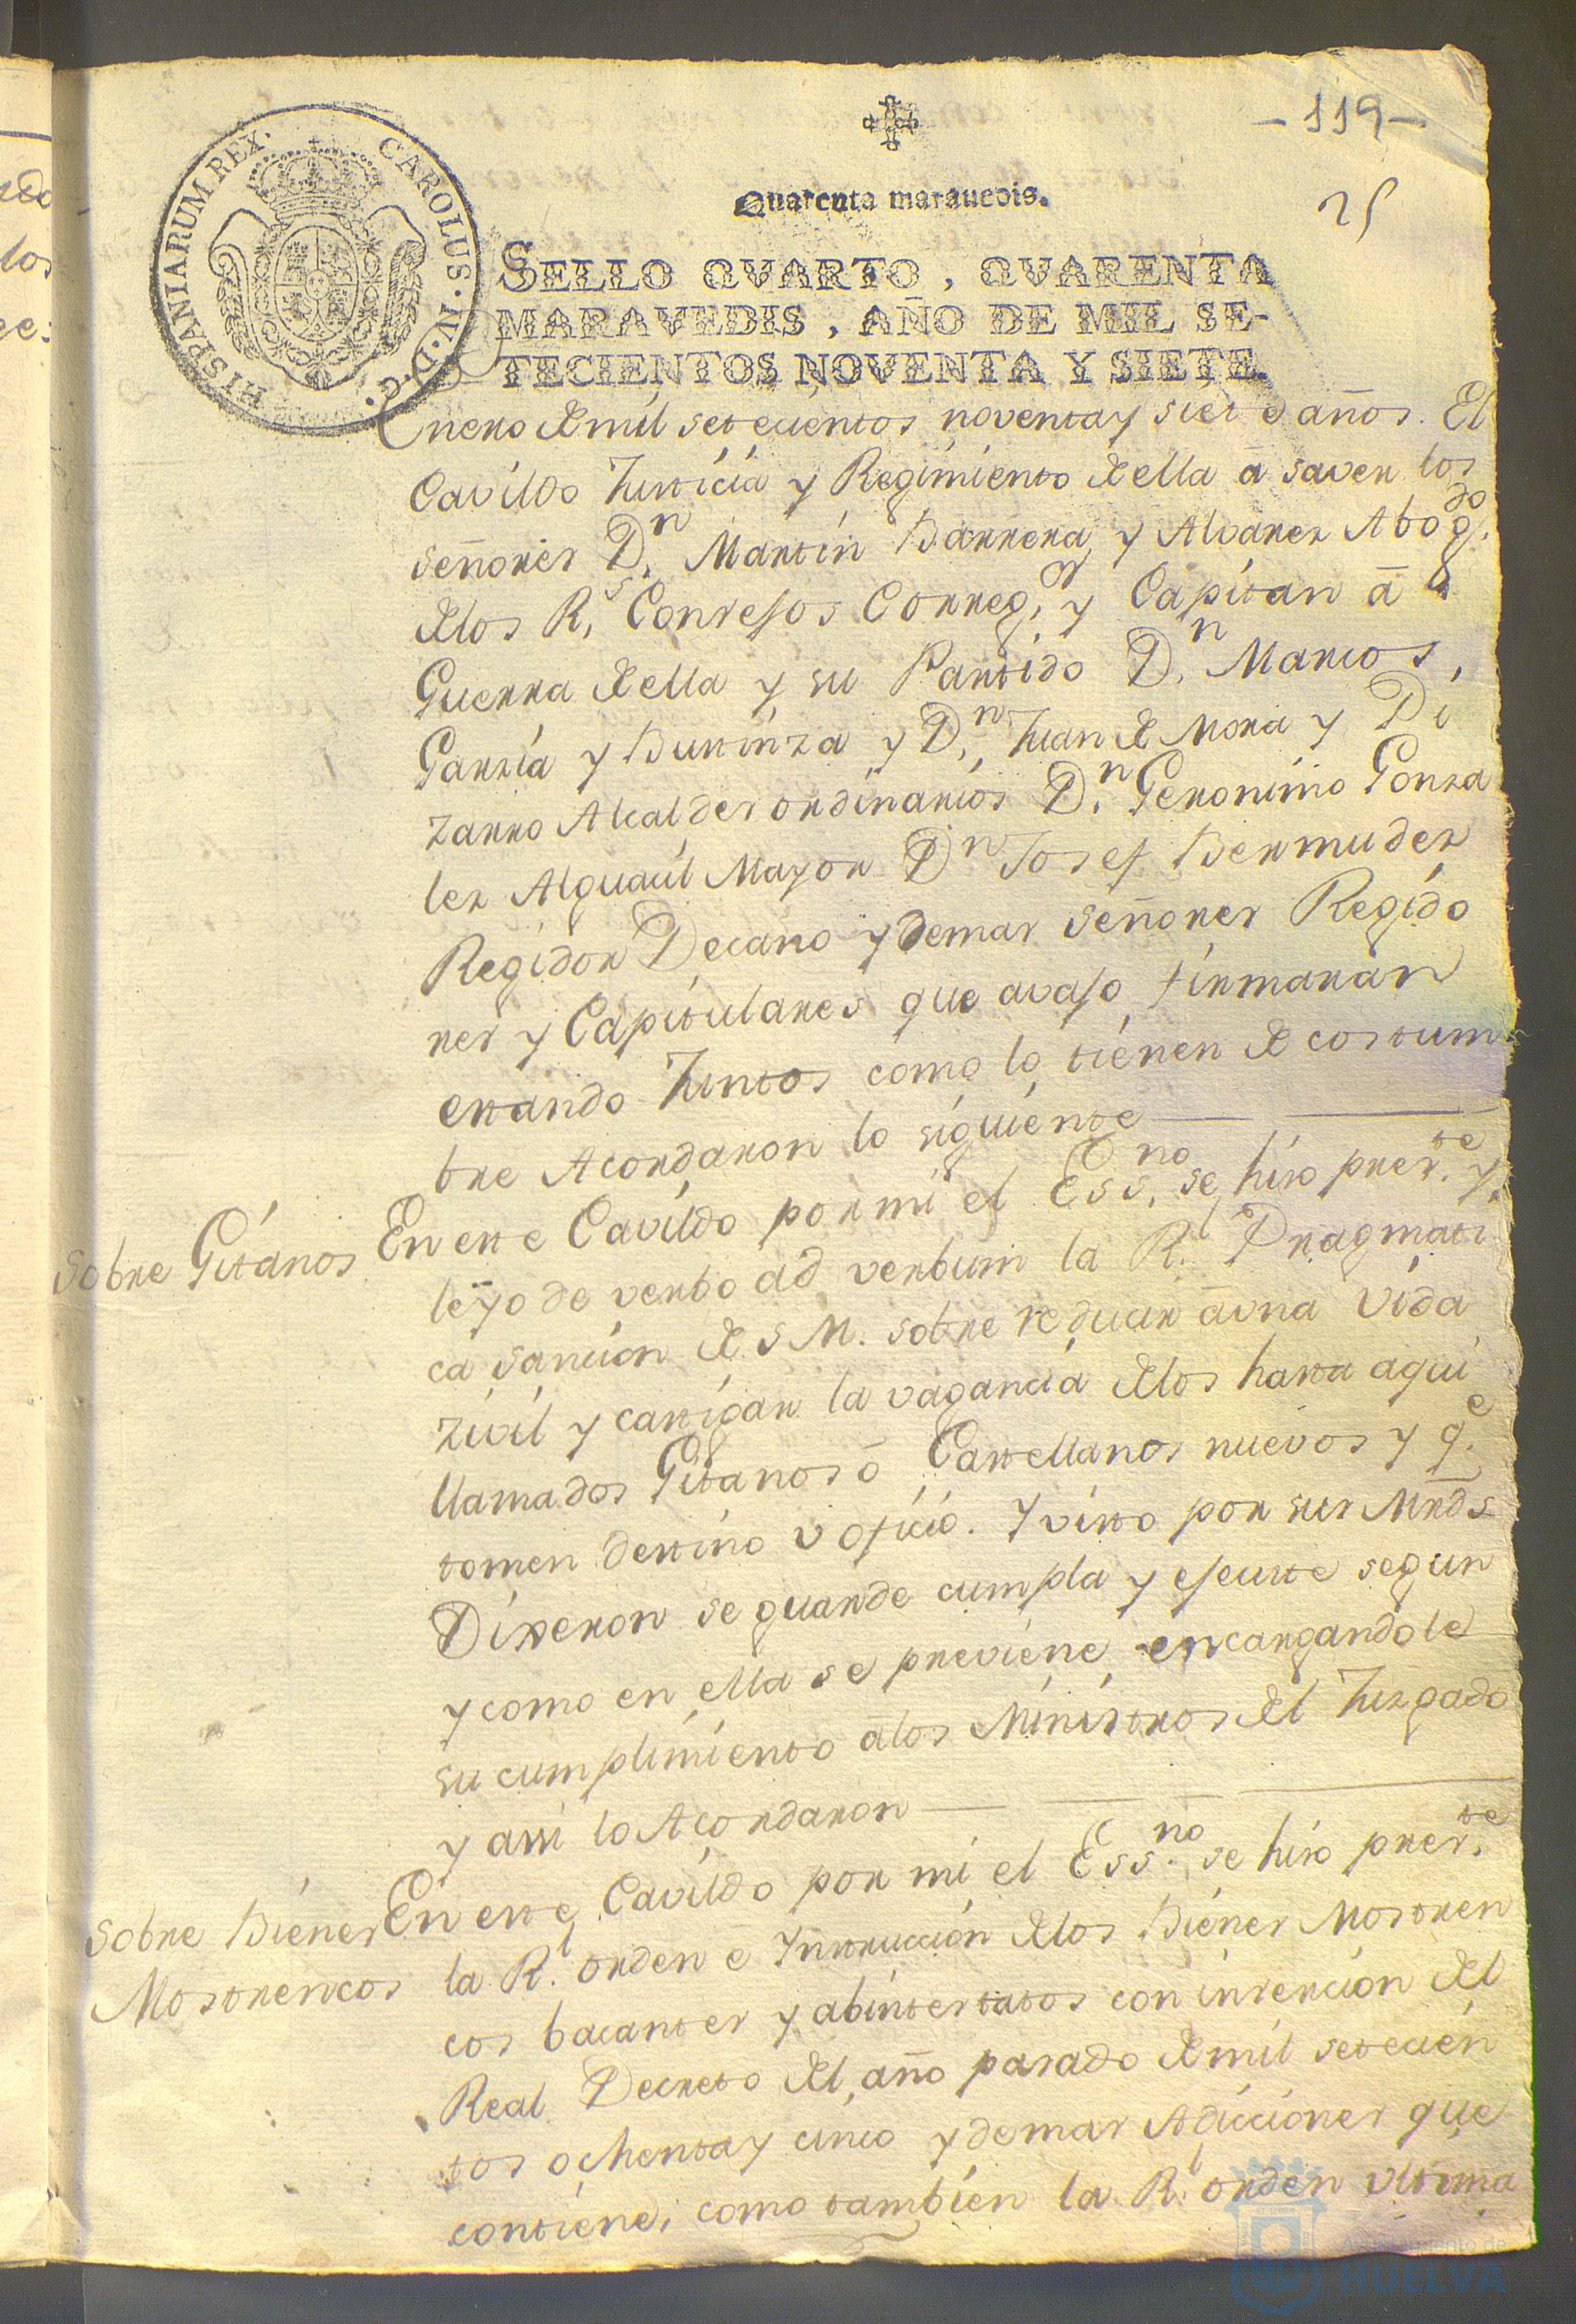 -119-
25
HISPANIARUM REX. CAROLUS. IV. D. G.
Quarenta marauedis.
SELLO QVARTO, QVARENTA
MARAVEDIS, AÑO DE MIL SE-
TECIENTOS NOVENTA Y SIETE.
Enero de mil setecientos noventa y siete años. El
Cavildo Justicia y Regimiento de ella a saver los
señores Dn. Martin Barrera y Alvarez Abogdo.
de los Rs. Consejos Corregor. y Capitan á
Guerra de ella y su Partido Dn. Marcos
Garzia y Burinza y Dn. Juan de Mora y Pi
zarro Alcaldes ordinarios Dn. Geronimo Gonza
lez Alguacil Mayor Dn Josef Bermudez
Regidor Decano y demas señores Regido
res y Capitulares que avajo firmaran
estando Juntos como lo tienen de costum
bre Acordaron lo siguiente
Sobre Gitanos
En este Cavildo por mi el Essno. se hizo preste. y
leyo de verbo ad verbum la Rl. Pragmati
ca sancion de S M. sobre reducir a una vida
zivil y castigar la vagancia de los hasta aqui
llamados Gitanos ó Castellanos nuevos y qe.
tomen destino v oficio. Y visto por sus Mrds
Dixeron se guarde cumpla y ejecute segun
y como en ella se previene encargandole
su cumplimiento a los Ministros del Juzgado
y assi lo Acordaron
Sobre Bienes
Mostrencos
En este Cavildo por mi el Essno. se hizo preste.
la Rl. orden e Ynstruccion de los Bienes Mostren
cos bacantes y abintestatos con insercion del
Real Decreto del año pasado de mil setecien
tos ochenta y cinco y demas Adicciones que
contiene, como tambien la Rl. orden vltima
Ayuntamiento de
HUELVA